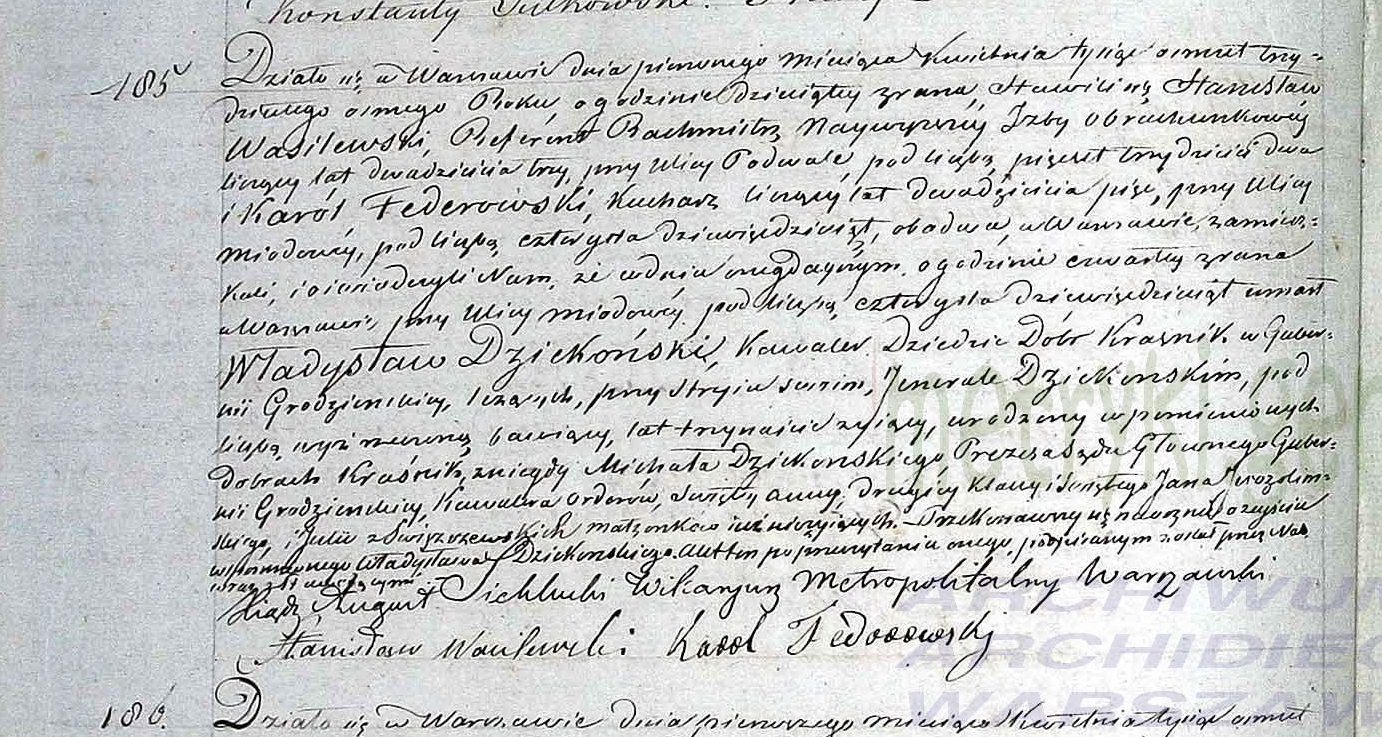 Konstanty
185 Działo się w Warszawie dnia pierwszego Miesiąca Kwietnia tysiąc ośmset trzy-
dziestego osmego Roku, o godzinie dziesiątey zrana, Stawili się Stanisław
Wasilewski, Referent Rachmistrz Naywyzszéy Izby obrachunkowéy
liczący lat dwadzieścia trzy, przy Ulicy Podwale, pod liczbą, pięćset trzydzieści dwa
i Karol Federowski, Kucharz liczący lat dwadzieścia pięć, przy Ulicy
Miodowéy, pod liczbą, czterysta dziewięćdziesiąt, obadwa, w Warszawie, zamiesz-
kali, i oświadczyli Nam, że w dniu onegdayszym, o godzinie czwartéy zrana
w Warszawie, przy Ulicy Miodowéy pod liczbą, czterysta dziewięćdziesiąt umarł
Władysław Dziekoński, Kawaler Dziedzic Dóbr Kraśnik w Guber-
nii Grodzieńskiéy, leżących, przy Stryiu swoim, Jenerale Dziekońskim, pod
liczbą wyż rzeczoną bawiący, lat trzynaście żyiący, urodzony w pomienionych
Dobrach Kraśnik, zniegdy Michała Dziekonskiego, Prezesa Sądu Głownego Guber-
nii Grodzienskiéy, Kawalera Orderów, Świętéy Anny, drugiéy klassy i Świętego Jana Jerozolim-
skiego, i Julii z Swięszczewskich małżonków iuż nieżyiących. – Przekonawszy się naocznie o zejściu
wspomnionego Władysława Dziekońskiego. Akt ten po przeczytaniu onego, podpisanym został przez Nas
wraz z Stawaiącymi.
Xiądz August Wikaryusz Metropolitalny Warszawski
Stanisław Wasilewski Karol Fedorowski
186. Działo się w Warszawie dnia pierwszego miesiąca Kwietnia tysiąc ośmset
metryki.ge
ARCHIWU
ARCHIDIEC
WARSZAW